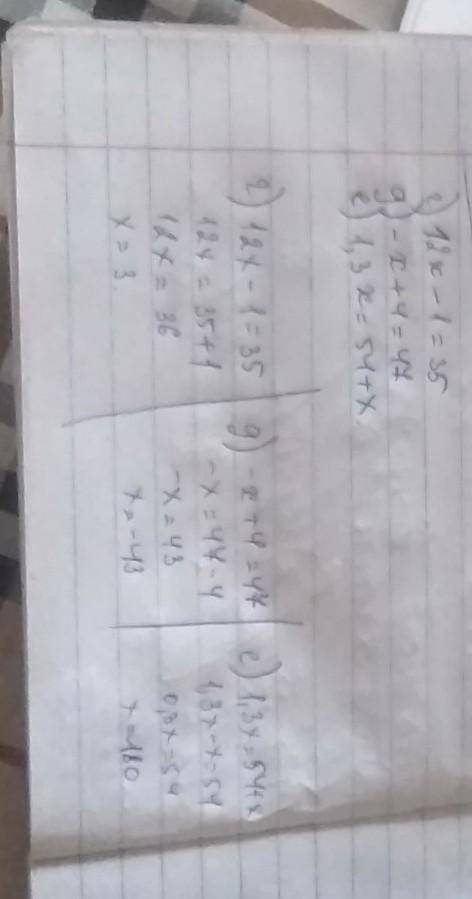 c) 12x - 1 = 35
g) - x + 4 = 47
e) 1,3x = 54 + x
2) 12x - 1 = 35
12x = 35 + 1
12x = 36
x = 3.
g) - x + 4 = 47
- x = 47 - 4
- x = 43
x = - 43
e) 1,3x = 54 + x
1,3x - x = 54
0,3x = 54
x = 180